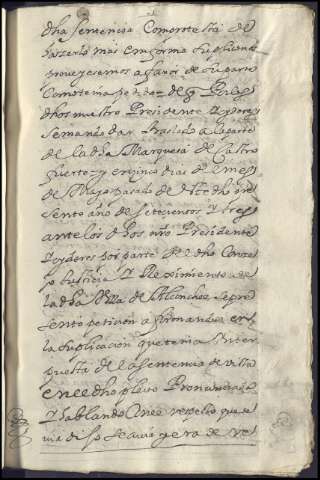 dha sentencia Como esta de
hazerlo mas en forma suplicando
proveyesemos a favor de su parte
Como tenia pedido de q̃
dhos nuestro Presidente y oydores
se mando dar traslado a la parte
de la dha Marquesa de Castro
fuerte y en cinco dias del mes
de Mayo pasado de este dho pre
sente año de setecientos y tres
ante los dhos nro Presidente
y oydores por parte del dho Conce
jo Justicia y Reximiento de
la dha Villa de Alconchel se pre
sento peticion afirmandose en
la suplicacion que tenia ynter
puesta de la sentencia de vista
en el dho pleito Pronunciada
y hablando Con el respeto que de
via dijo se avia y era de re